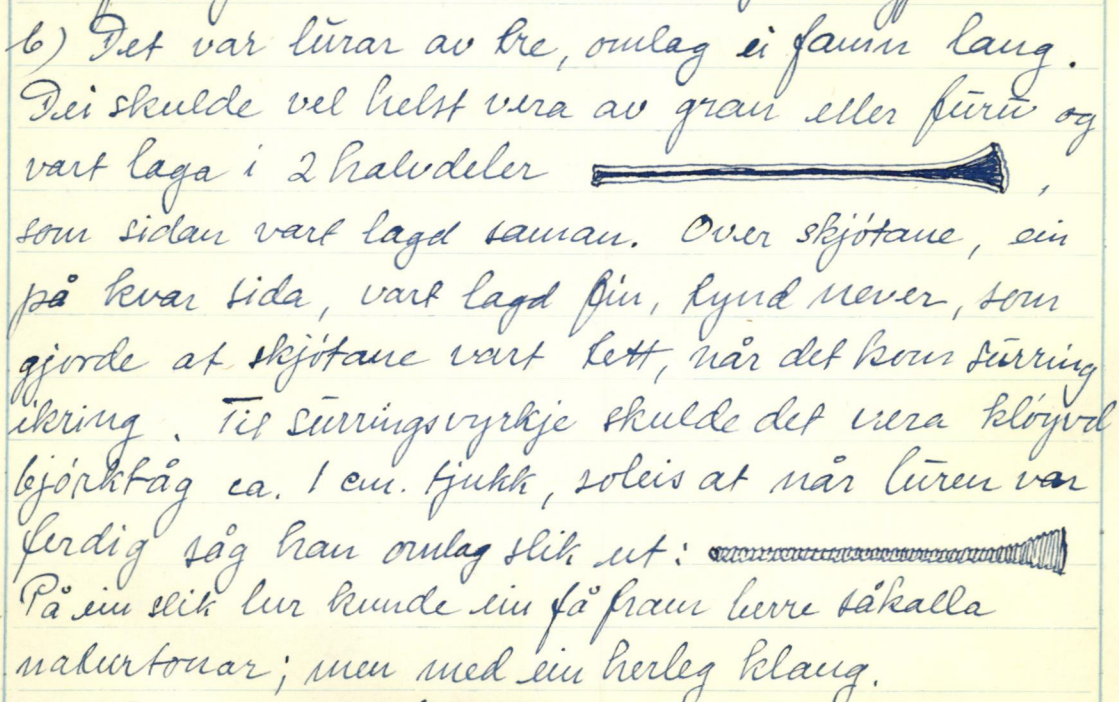 b) Det var lurar av tre, omlag ei famn lang.
Dei skulde vel helst vera av gran eller furu og
vart laga i 2 halvdeler ,
som sidan vart lagd saman. Over skjøtane, ein
på kvar sida, vart lagd fin, tynd never, som
gjorde at skjøtane vart tett, når det kom surring
ikring. Til surringsvyrkje skulde det vera kløyvd
bjørktåg ca. 1 cm. tjukk, soleis at når luren var
ferdig såg han omlag slik ut:
På ein slik lur kunde ein få fram berre såkalla
naturtonar; men med ein herleg klang.